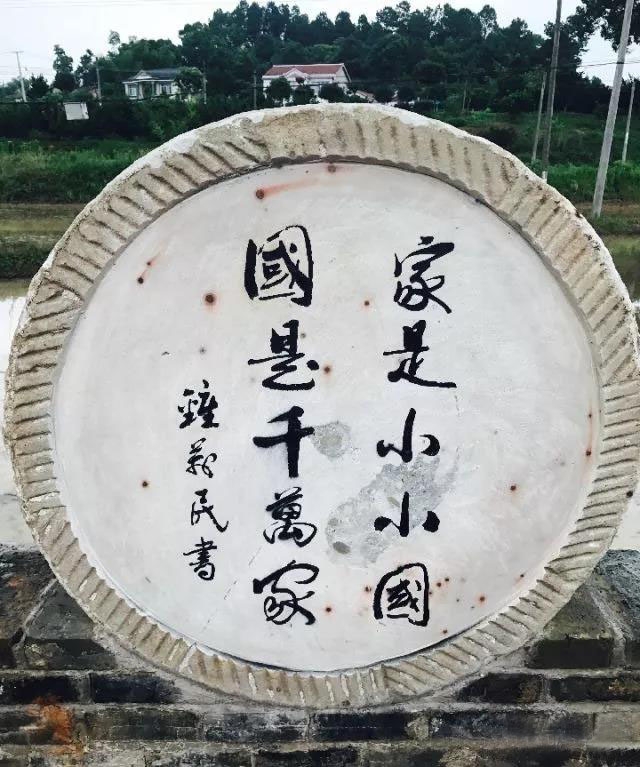 家是小小國
國是千萬家
鍾新民書